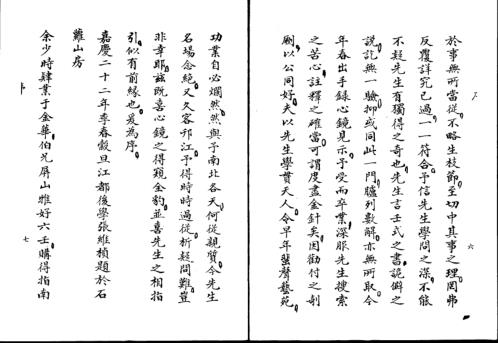 於事無所當從不略生枝節至切中其事之理罔弗
反覆詳究已過一一符合予信先生學問之深不能
不趕先生有獨得之奇也先生言壬式之書詭僻之
說訖無一驗抑或同此一門臚列數解亦無所取今
年春出手錄心鏡見示予受而卒業深服先生搜索
之苦心註釋之確當可謂度盡金針矣因勸付之剞
劂以公同好夫以先生學貫天人令早年蜚聲藝苑
六
功業自必爛然然與予南北各天何從親質今先生
名場念絕又久客邗江予得時時過從析疑問難豈
非幸耶茲既喜心鏡之得窺全豹並喜先生之相指
引似有前緣也爰為序
嘉慶二十二年季春穀旦江都後學張維楨題於石
蘿山房
余少時肄業于金華伯兄屏山雅好六壬購得指南
七